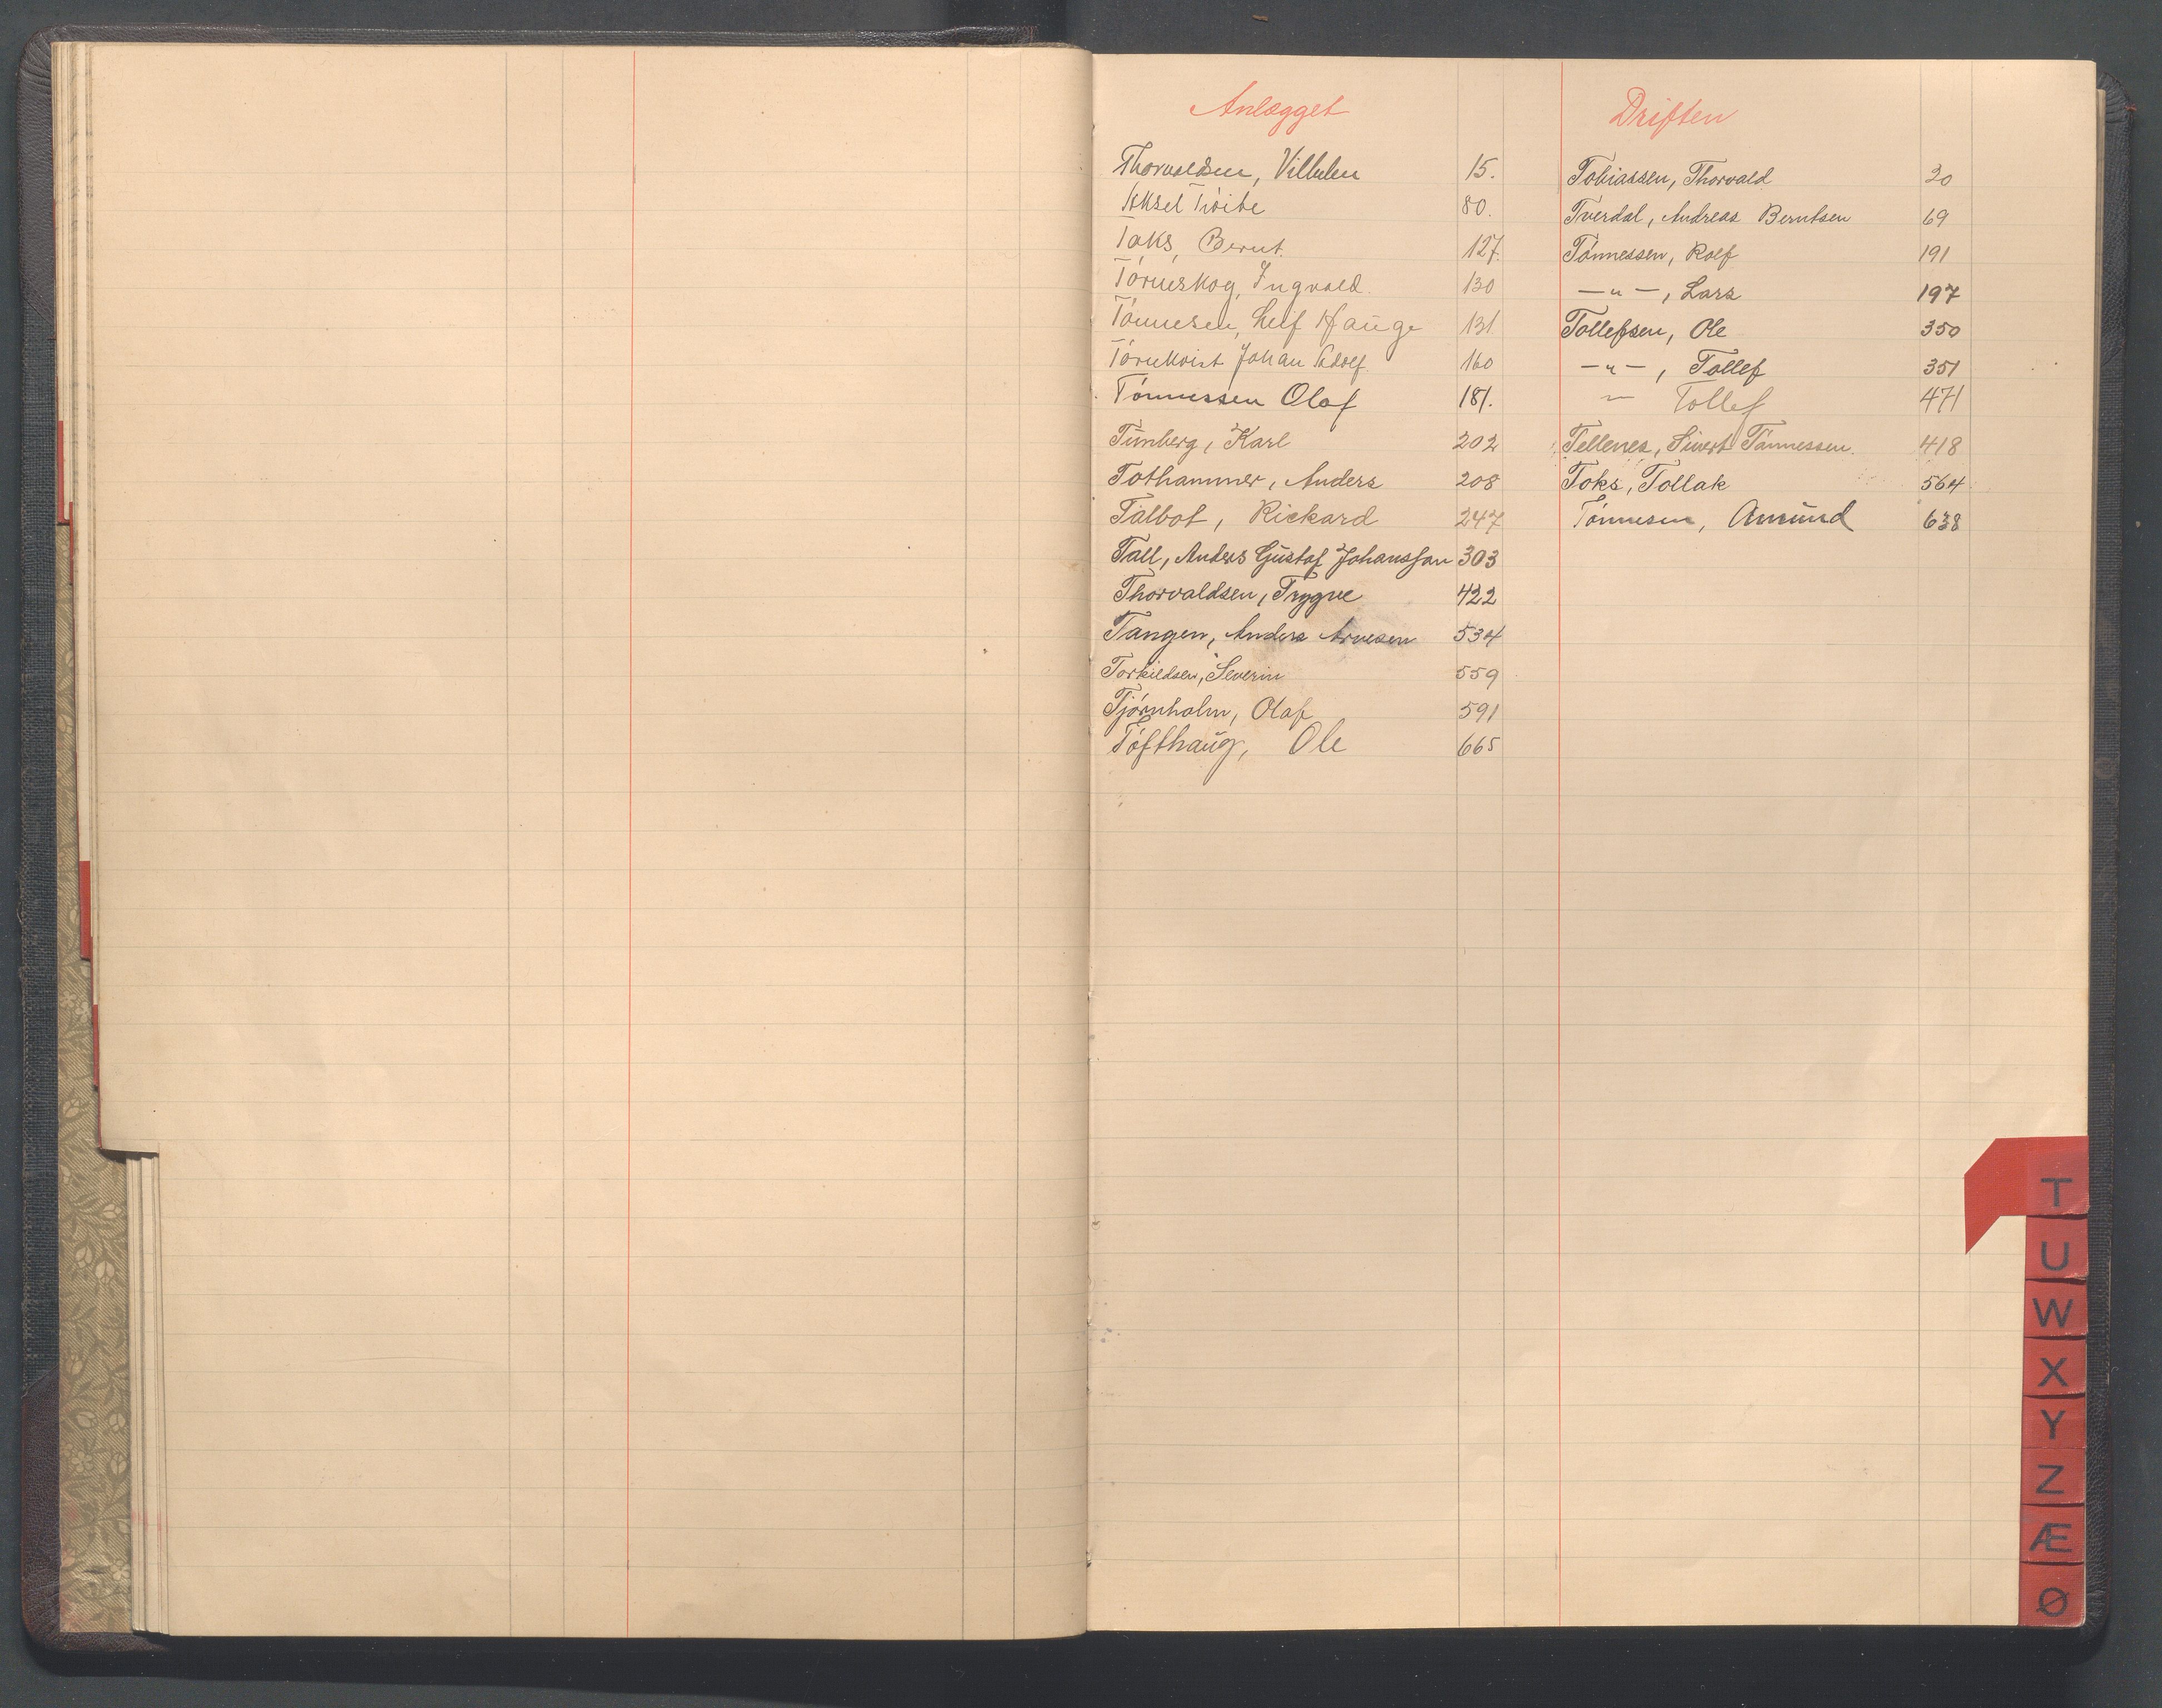 Anlægget
Thorvaldsen, Vilhelm 15.
Aksel Tvóite 80.
Toks, Bernt. 127.
Tórneskog, Ingvald. 130
Tónnesen, Leif Hauge 131
Tórnkvist Johan Adolf 160
Tónnessen Olaf 181.
Tünberg, Karl 202
Tothammer, Anders 208
Talbot, Rickard 247
Tall, Anders Gustaf Johanssan 303
Thorvaldsen, Trygve 422
Tangen, Anders Arnesen 534
Torkildsen, Severin 559
Tjórnholm, Olaf 591
Tófthaug, Ole 665
Driften
Tobiassen, Thorvald 30
Tverdal, Andreas Berntsen 69
Tónnessen, Rolf 191
—"—, Lars 197
Tollefsen, Ole 350
—"—, Tollef 351
— Tollef 471
Tellenes, Sivert Tónnessen. 418
Toks, Tollak 564
Tónnesen, Amund 638
T
U
W
X
Y
Z
Æ
Ø